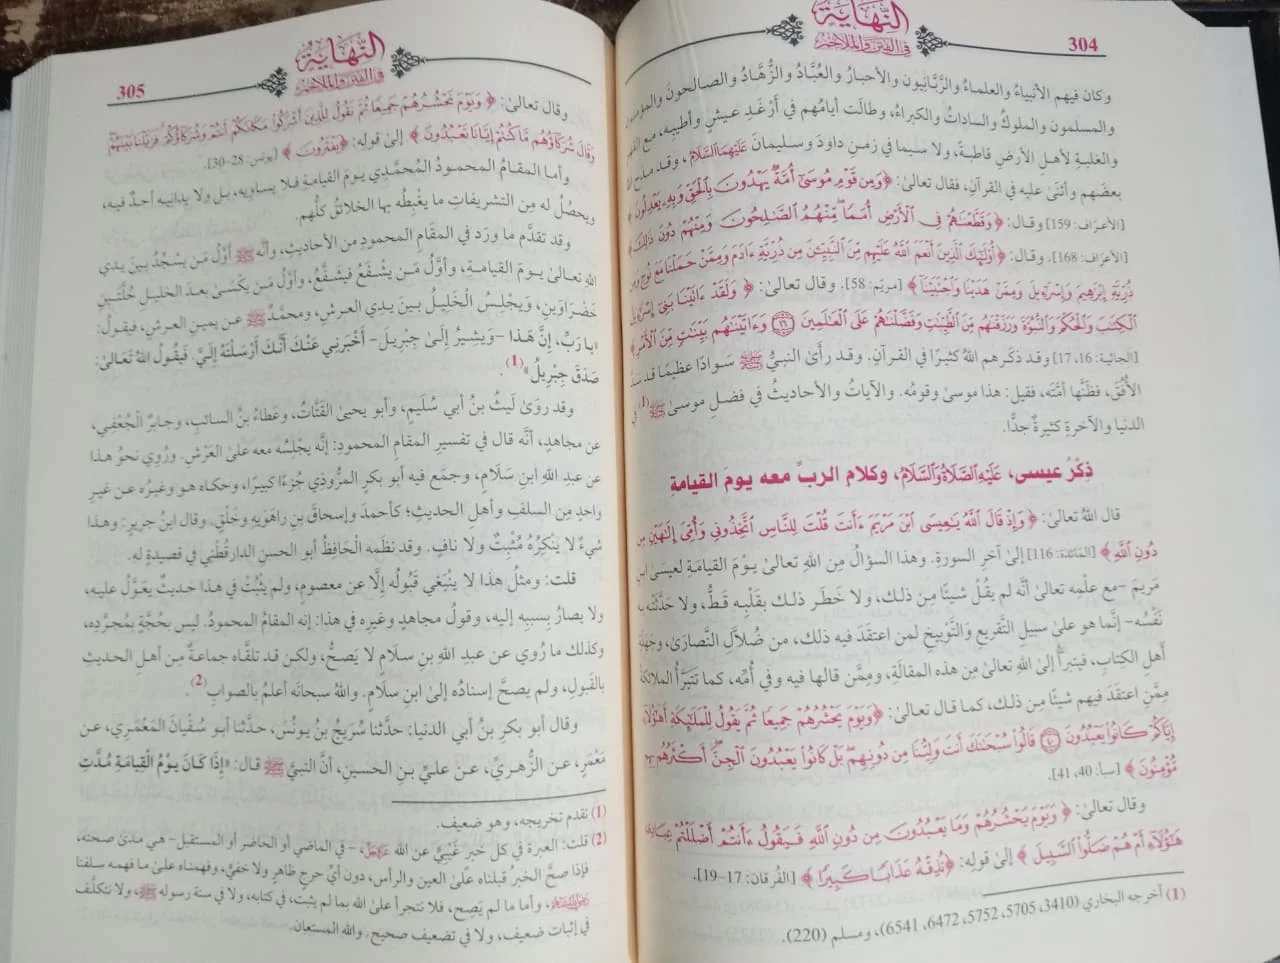 304
النِّهَايَة
في الفتن والملاحم
وكان فيهم الأنبياءُ والعلماءُ والرَّبَّانِيون والأحبارُ والعُبَّادُ والزُّهَّادُ والصالحونَ
والمسلمون والملوكُ والساداتُ والكبراءُ، وطالَت أيامُهم في أرْغَدِ عيشٍ وأطيبِه، مع
والغلبةِ لأهلِ الأرضِ قاطبةً، ولا سيما في زمنِ داودَ وسليمانَ عَلَيْهِمَا السَّلَامُ، وقد مدح الله
بعضَهم وأثنَى عليه في القرآنِ، فقال تعالىٰ: ﴿وَمِن قَوْمِ مُوسَىٰ أُمَّةٌ يَهْدُونَ بِالْحَقِّ وَبِهِ يَعْدِلُونَ﴾
[الأعرَاف: 159] وقـال: ﴿وَقَطَّعْنَاهُمْ فِي الْأَرْضِ أُمَمًا مِّنْهُمُ الصَّالِحُونَ وَمِنْهُمْ دُونَ ذَٰلِكَ﴾
[الأعرَاف: 168]. وقال: ﴿أُولَٰئِكَ الَّذِينَ أَنْعَمَ اللَّهُ عَلَيْهِم مِّنَ النَّبِيِّينَ مِن ذُرِّيَّةِ ءَادَمَ وَمِمَّنْ حَمَلْنَا مَعَ نُوحٍ وَمِن
ذُرِّيَّةِ إِبْرَاهِيمَ وَإِسْرَائِيلَ وَمِمَّنْ هَدَيْنَا وَاجْتَبَيْنَا﴾ [مريَم: 58]. وقال تعالىٰ: ﴿وَلَقَدْ ءَاتَيْنَا بَنِي إِسْرَائِيلَ
الْكِتَابَ وَالْحُكْمَ وَالنُّبُوَّةَ وَرَزَقْنَاهُم مِّنَ الطَّيِّبَاتِ وَفَضَّلْنَاهُمْ عَلَى الْعَالَمِينَ ۝١٦ وَءَاتَيْنَاهُم بَيِّنَاتٍ مِّنَ الْأَمْرِ﴾
[الجاثية: 16، 17] وقد ذكَرهم اللهُ كثيرًا في القرآنِ. وقد رأَىٰ النبيُّ ﷺ سَوادًا عظيمًا قد سَدَّ
الأُفُقَ، فظَنَّها أمَّتَه، فقيل: هذا موسىٰ وقومُه. والآياتُ والأحاديثُ في فضلِ موسىٰ ﷺ(1) في
الدنيا والآخرةِ كثيرةٌ جدًّا.
ذِكْرُ عيسى، عَلَيْهِ الصَّلَاةُ وَالسَّلَامُ، وكلام الربِّ معه يومَ القيامةِ
قال اللهُ تعالىٰ: ﴿وَإِذْ قَالَ اللَّهُ يَاعِيسَى ابْنَ مَرْيَمَ ءَأَنتَ قُلْتَ لِلنَّاسِ اتَّخِذُونِي وَأُمِّيَ إِلَٰهَيْنِ مِن
دُونِ اللَّهِ﴾ [المَائدة: 116] إلىٰ آخرِ السورةِ. وهذا السؤالُ مِن اللهِ تعالىٰ يوْمَ القيامَةِ لعيسَىٰ ابنِ
مَريمَ -مع عِلْمِه تعالىٰ أنَّه لم يقُلْ شيئًا مِن ذلك، ولا خَطَر ذلك بقَلْبِه قَطُّ، ولا حَدَّثَتْه به
نَفْسُه- إنَّما هو علىٰ سبيلِ التَّقريعِ والتَّوْبِيخِ لمن اعتقَدَ فيه ذلك، من ضُلَّالِ النَّصارَىٰ، وجَهَلَةِ
أهلِ الكِتابِ، فيتبرأُ إلىٰ اللهِ تعالىٰ من هذه المقالَةِ، ومِمَّن قالها فيه وفي أُمِّه، كما تتَبَرَّأُ الملائكةُ
مِمَّن اعتقدَ فيهم شيئًا مِن ذلك، كما قال تعالىٰ: ﴿وَيَوْمَ يَحْشُرُهُمْ جَمِيعًا ثُمَّ يَقُولُ لِلْمَلَائِكَةِ أَهَٰؤُلَاءِ
إِيَّاكُمْ كَانُوا يَعْبُدُونَ ۝٤٠ قَالُوا سُبْحَانَكَ أَنتَ وَلِيُّنَا مِن دُونِهِم بَلْ كَانُوا يَعْبُدُونَ الْجِنَّ أَكْثَرُهُم بِهِم
مُّؤْمِنُونَ﴾ [سبأ: 40، 41].
وقال تعالىٰ: ﴿وَيَوْمَ يَحْشُرُهُمْ وَمَا يَعْبُدُونَ مِن دُونِ اللَّهِ فَيَقُولُ ءَأَنتُمْ أَضْلَلْتُمْ عِبَادِي
هَٰؤُلَاءِ أَمْ هُمْ ضَلُّوا السَّبِيلَ﴾ إلىٰ قولِه: ﴿نُذِقْهُ عَذَابًا كَبِيرًا﴾ [الفُرقان: 17-19].
(1) أخرجه البخاري (3410، 5705، 5752، 6472، 6541)، ومسلم (220).
305
النِّهَايَة
في الفتن والملاحم
وقال تعالىٰ: ﴿وَيَوْمَ نَحْشُرُهُمْ جَمِيعًا ثُمَّ نَقُولُ لِلَّذِينَ أَشْرَكُوا مَكَانَكُمْ أَنتُمْ وَشُرَكَاؤُكُمْ فَزَيَّلْنَا بَيْنَهُمْ
وَقَالَ شُرَكَاؤُهُم مَّا كُنتُمْ إِيَّانَا تَعْبُدُونَ﴾ إلىٰ قوله: ﴿يَفْتَرُونَ﴾ [يونس: 28-30].
وأما المقامُ المحمودُ المُحمَّدِي يومَ القيامةِ فلا يساوِيه، بل ولا يدانيه أحدٌ فيه،
ويحصُلُ له مِن التشريفاتِ ما يغْبِطُه بها الخلائقُ كلُّهم.
وقد تقدَّم ما ورَد في المقَامِ المحمودِ من الأحاديثِ، وأنَّه ﷺ أوَّلُ مَن يسْجُدُ بينَ يدي
اللهِ تعالىٰ يومَ القيامةِ، وأوَّلُ مَن يشْفَعُ فيُشَفَّعُ، وأوَّلُ مَن يكْسَىٰ بعدَ الخليلِ حُلَّتَيْنِ
خَضْراوَيْنِ، ويَجْلِسُ الْخَلِيلُ بينَ يدي العرشِ، ومحمَّدٌ ﷺ عن يمينِ العرشِ، فيقولُ:
«يا رَبِّ، إنَّ هَذا -ويشِيرُ إلَىٰ جِبْرِيلَ- أخْبَرنِي عَنْكَ أنَّكَ أرْسَلْتَهُ إلَيَّ. فَيقُولُ اللهُ تَعَالَىٰ:
صَدَقَ جِبْرِيلُ»(1).
وقد روَىٰ لَيثُ بنُ أبي سُلَيمٍ، وأبو يحيىٰ القَتَّاتُ، وعَطاءُ بنُ السائبِ، وجابرٌ الْجُعْفِي،
عن مجاهدٍ، أنَّه قال في تفسيرِ المقامِ المحمودِ: إنَّه يجْلِسُه معه علىٰ العَرْشِ. ورُوِي نحوُ هذا
عن عبدِ اللهِ ابنِ سَلَامٍ، وجمَع فيه أبو بكرٍ المرُّوذِي جُزءًا كبيرًا، وحكاه هو وغيرُه عن غيرِ
واحدٍ مِن السلفِ وأهلِ الحديثِ؛ كأحمدَ وإسحاقَ بنِ راهَوَيهِ وخَلْقٍ. وقال ابنُ جريرٍ: وهذا
شيءٌ لا ينْكِرُهُ مُثْبِتٌ ولا نافٍ. وقد نظَمه الْحَافظُ أبو الحسنِ الدارقُطْنِي في قصيدةٍ له.
قلت: ومثلُ هذا لا ينْبَغِي قَبُولُه إلَّا عن معصومٍ، ولم يثْبُتْ في هذا حديثٌ يعَوَّلُ عليه،
ولا يصارُ بِسببِه إليه، وقولُ مجاهدٍ وغيرِه في هذا: إنه المقامُ المحمودُ. ليس بحُجَّةٍ بمُجرَّدِه،
وكذلك ما رُوِي عن عبدِ اللهِ بنِ سلَامٍ لا يَصحُّ، ولكن قد تلقَّاه جماعةٌ مِن أهلِ الحديثِ
بالقَبولِ، ولم يصحَّ إسنادُه إلىٰ ابنِ سلامٍ. واللهُ سبحانَه أعلمُ بالصوابِ(2).
وقال أبو بكرِ بنُ أبي الدنيا: حدَّثنا سُرَيجُ بنُ يونُسَ، حدَّثنا أبو سُفْيانَ المَعْمَرِي، عن
مَعْمَرٍ، عن الزُّهريِّ، عن عليِّ بنِ الحسينِ، أنَّ النبيَّ ﷺ قال: «إذَا كَانَ يوْمُ الْقِيَامَةِ مُدَّتِ
(1) تقدم تخريجه، وهو ضعيف.
(2) قلت: العبرة في كل خبر غَيْبيٍّ عن الله عَزَّوَجَلَّ -في الماضي أو الحاضر أو المستقبل- هي مدىٰ صحته،
فإذا صحَّ الخبرُ قبلناه علىٰ العين والرأس، دون أيِّ حرجٍ ظاهرٍ ولا خفيٍّ، وفهمناه علىٰ ما فهمه سلفنا
، وأما ما لم يَصِح، فلا نتجرأ علىٰ الله بما لم يثبت، في كتابه، ولا في سنة رسوله ﷺ، ولا نتكلَّف
في إثبات ضعيف، ولا في تضعيف صحيح. والله المستعان.